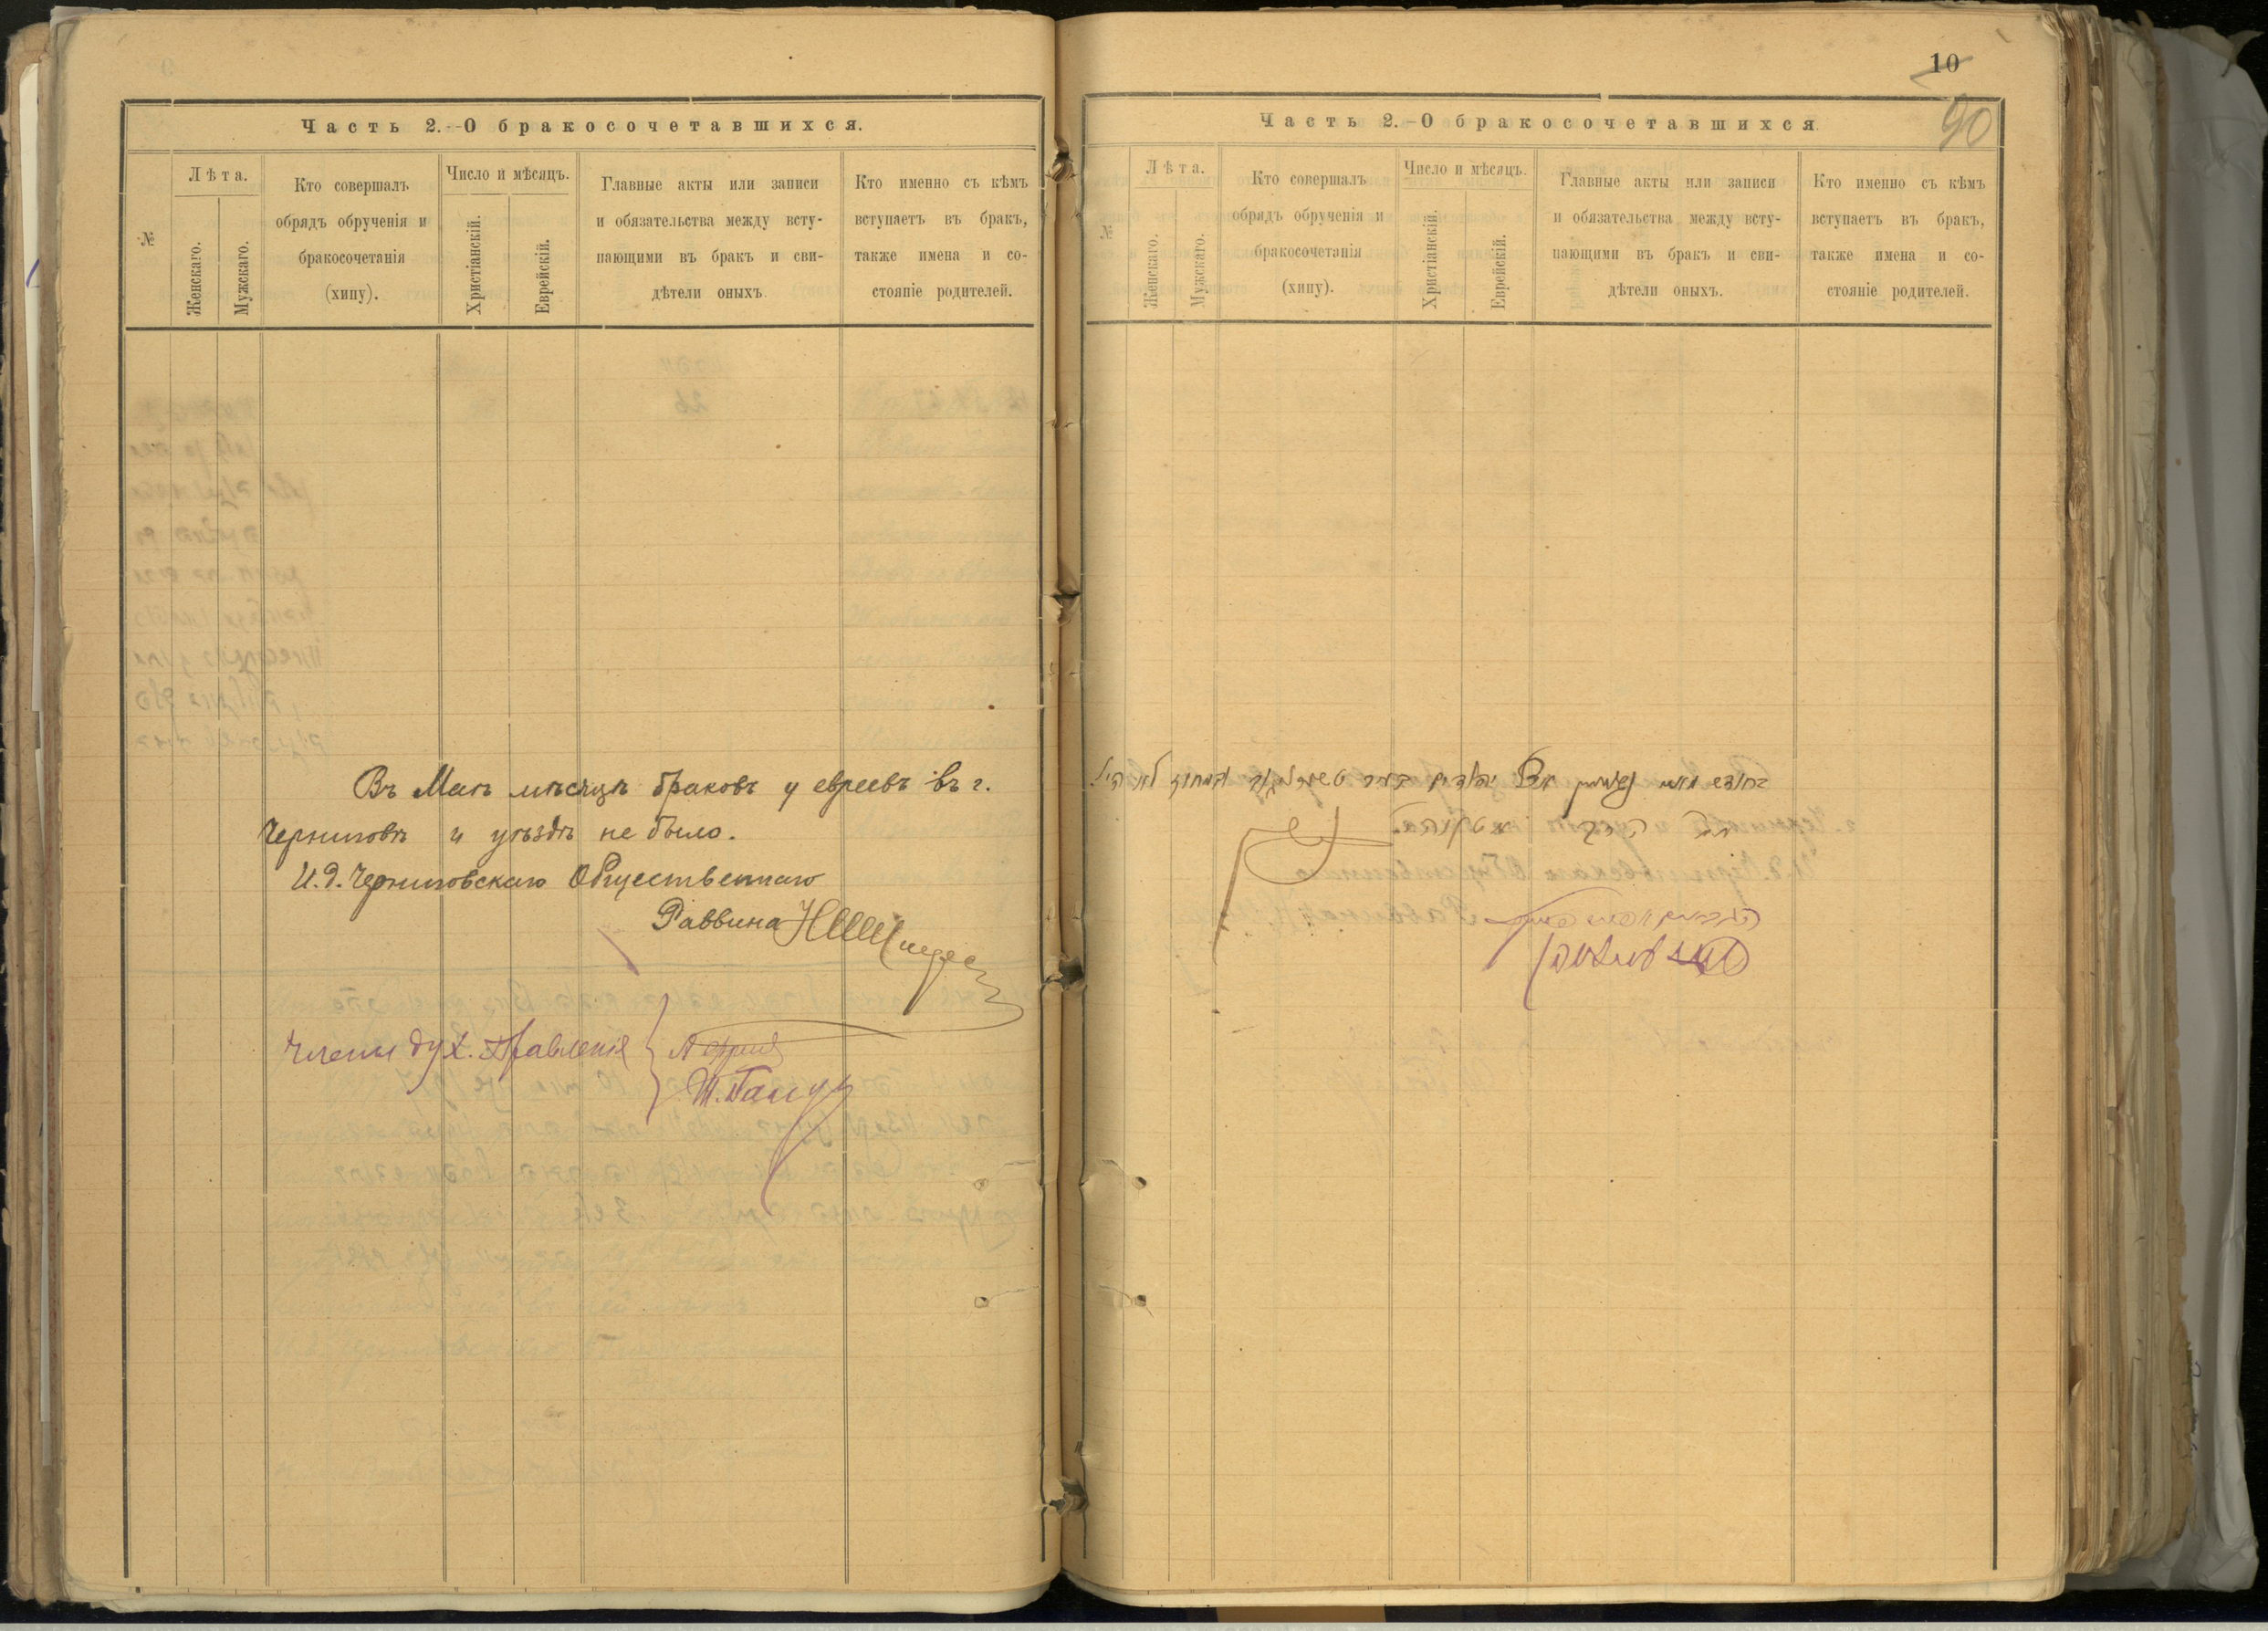 Часть 2.—О бракосочетавшихся.
№
Лѣта.
Женскаго.
Мужскаго.
Кто совершалъ
обрядъ обрученія и
бракосочетанія
(хипу).
Число и мѣсяцъ.
Христіанскій.
Еврейскій.
Главные акты или записи
и обязательства между всту-
пающими въ бракъ и сви-
дѣтели оныхъ.
Кто именно съ кѣмъ
вступаетъ въ бракъ,
также имена и со-
стояніе родителей.
Въ Маѣ мѣсяцѣ браковъ у евреевъ въ г.
Черниговѣ и уѣздѣ не было.
И.д. Черниговскаго Общественнаго
Раввина
Члены дух. правленія
10
90
Часть 2.—О бракосочетавшихся
№
Лѣта.
Женскаго.
Мужскаго.
Кто совершалъ
обрядъ обрученія и
бракосочетанія
(хипу).
Число и мѣсяцъ.
Христіанскій.
Еврейскій.
Главные акты или записи
и обязательства между всту-
пающими въ бракъ и сви-
дѣтели оныхъ.
Кто именно съ кѣмъ
вступаетъ въ бракъ,
также имена и со-
стояніе родителей.
בחודש מאי יהודים בעיר לא היו